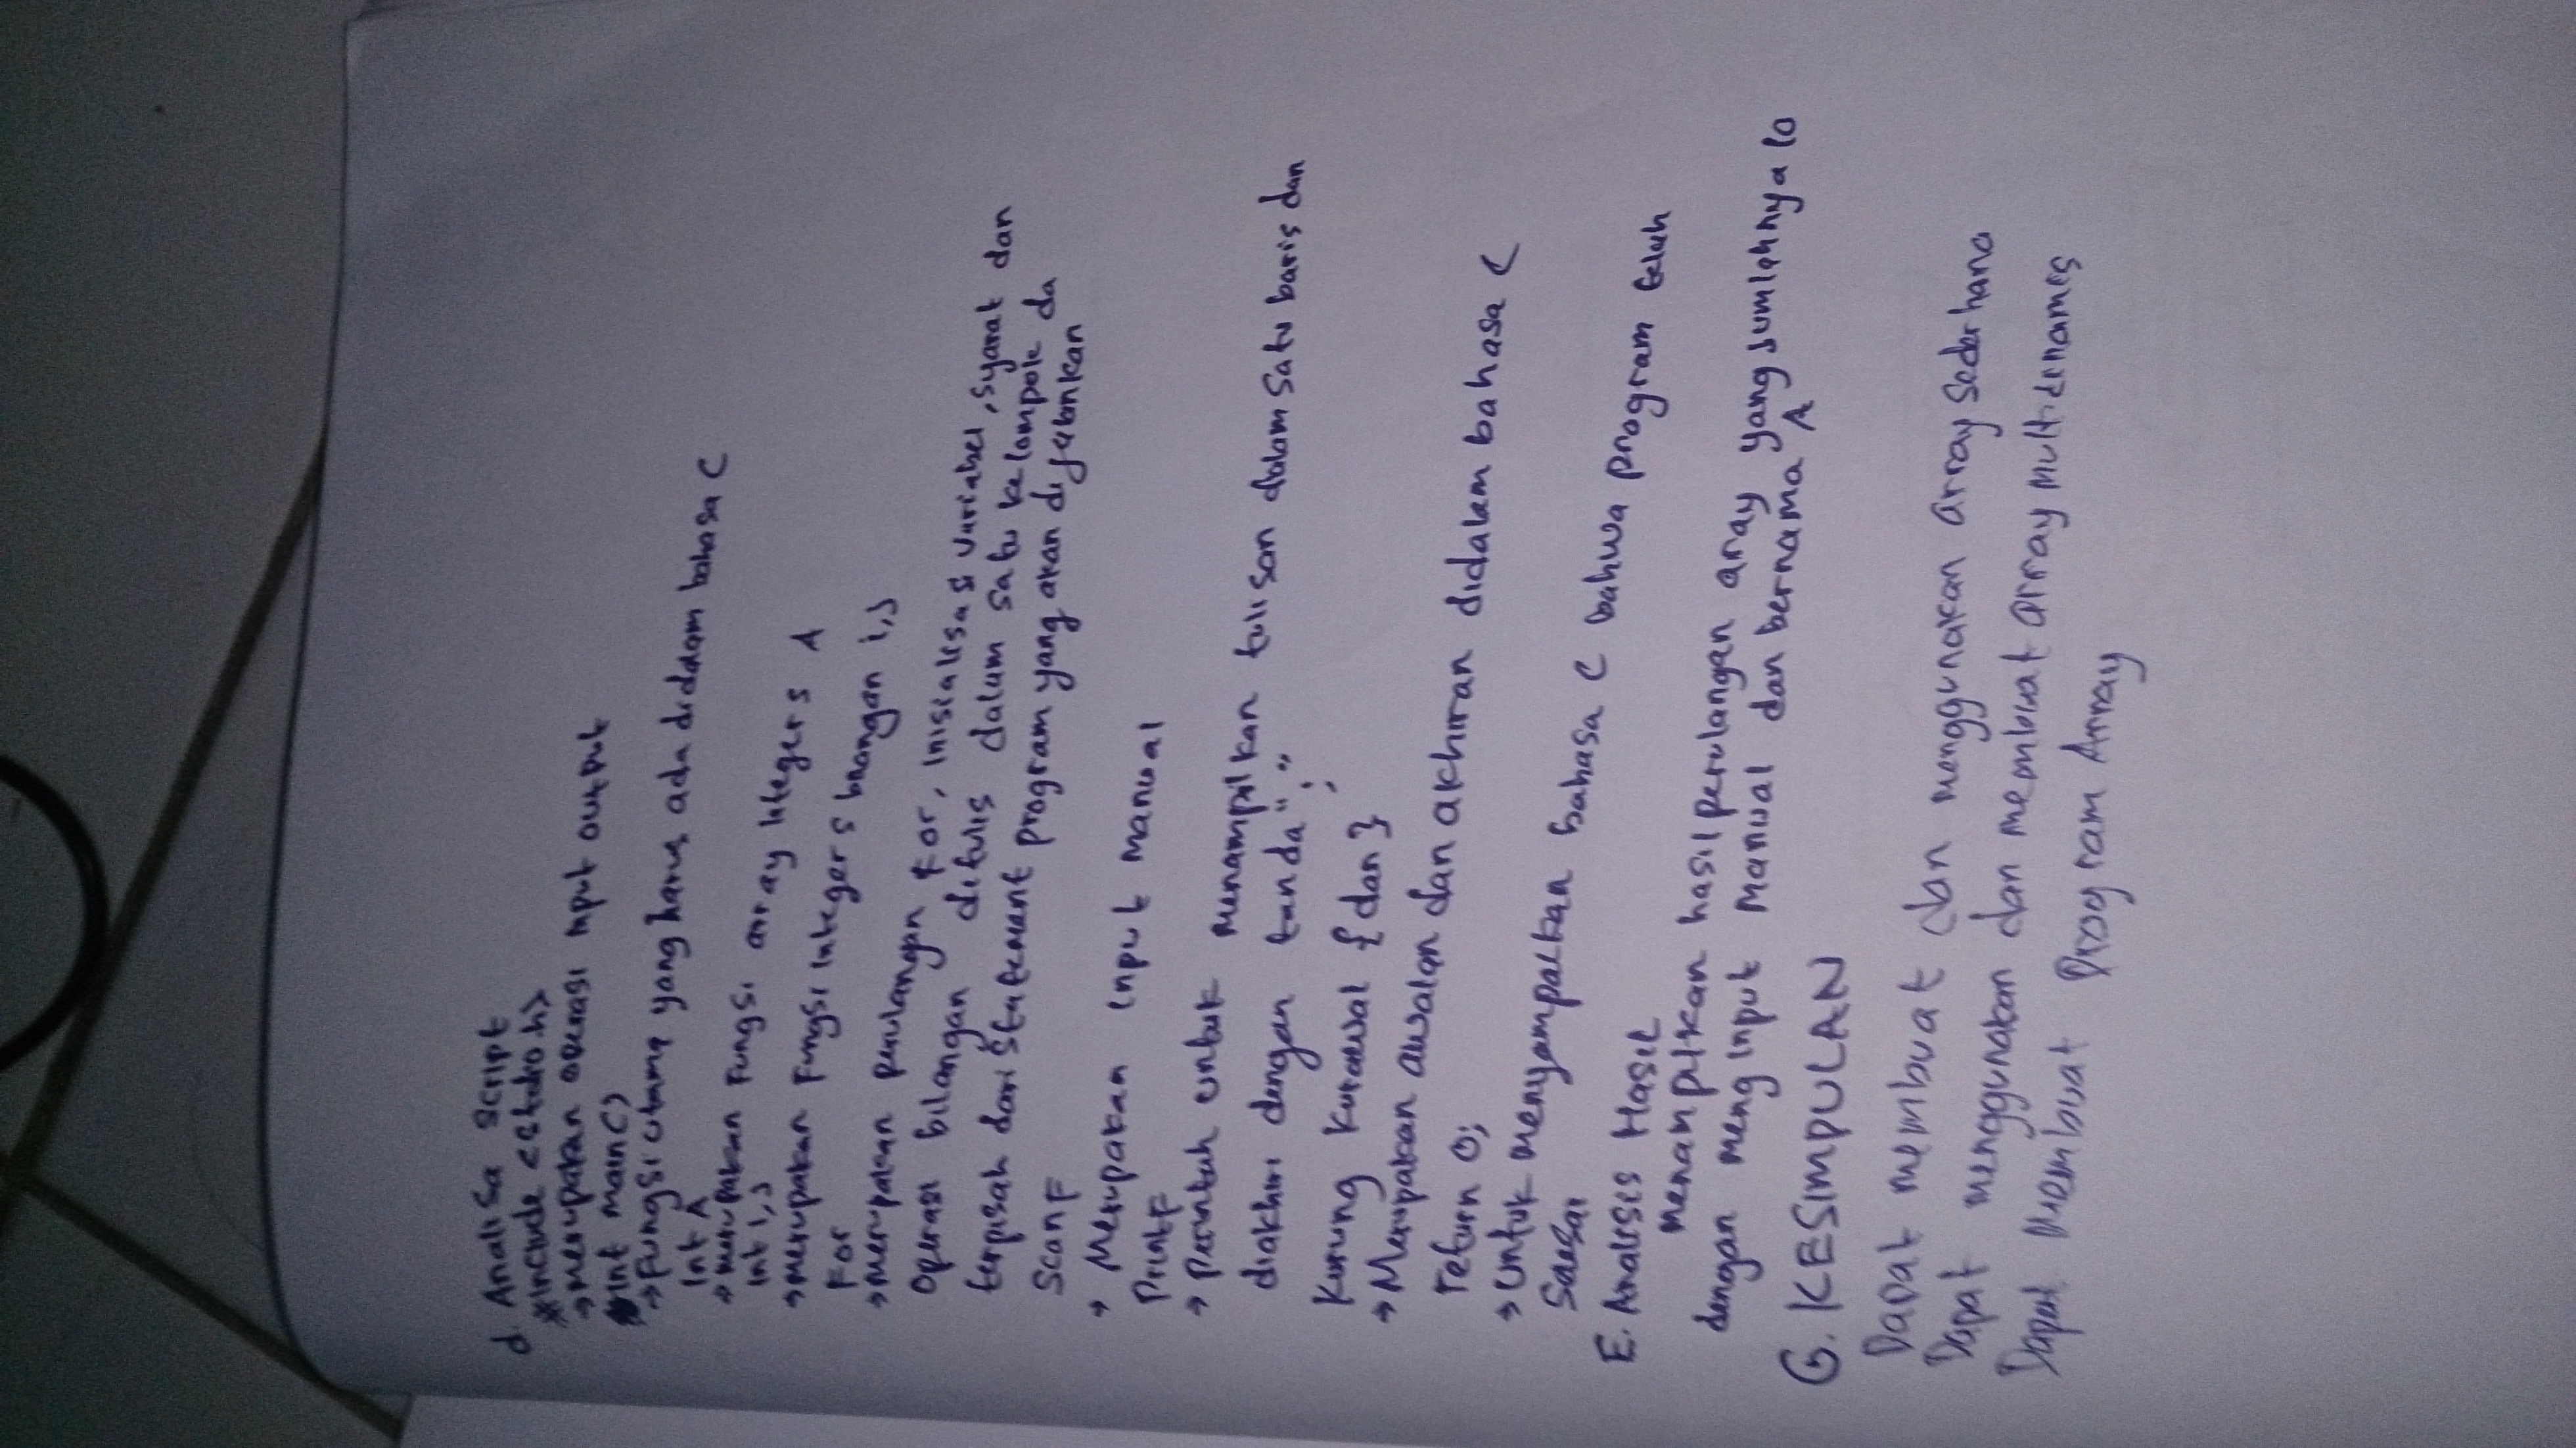 d. Analisa script
#include <stdio.h>
→ merupakan operasi input output
int main()
→ Fungsi utama yang harus ada didalam bahasa C
Int A
→ merupakan Fungsi array integers A
int i,j
→ merupakan Fungsi integers bilangan i,j
For
→ merupakan perulangan For, inisialisasi variabel, syarat dan
operasi bilangan ditulis dalam satu kelompok da
terpisah dari statement program yang akan dijalankan
Scanf
→ Merupakan input manual
PrintF
→ Perintah untuk menampilkan tulisan dalam satu baris dan
diakhiri dengan tanda " ; "
Kurung kurawal { dan }
→ Merupakan awalan dan akhiran didalam bahasa C
return 0;
→ Untuk menyampaikan bahasa C bahwa program telah
E. Analisis Hasil
menampilkan hasil perulangan array yang jumlahnya 10
dengan menginput manual dan bernama A
G. KESIMPULAN
Dapat membuat dan menggunakan array Sederhana
Dapat menggunakan dan membuat array multidimames
Dapat Membuat Program Array